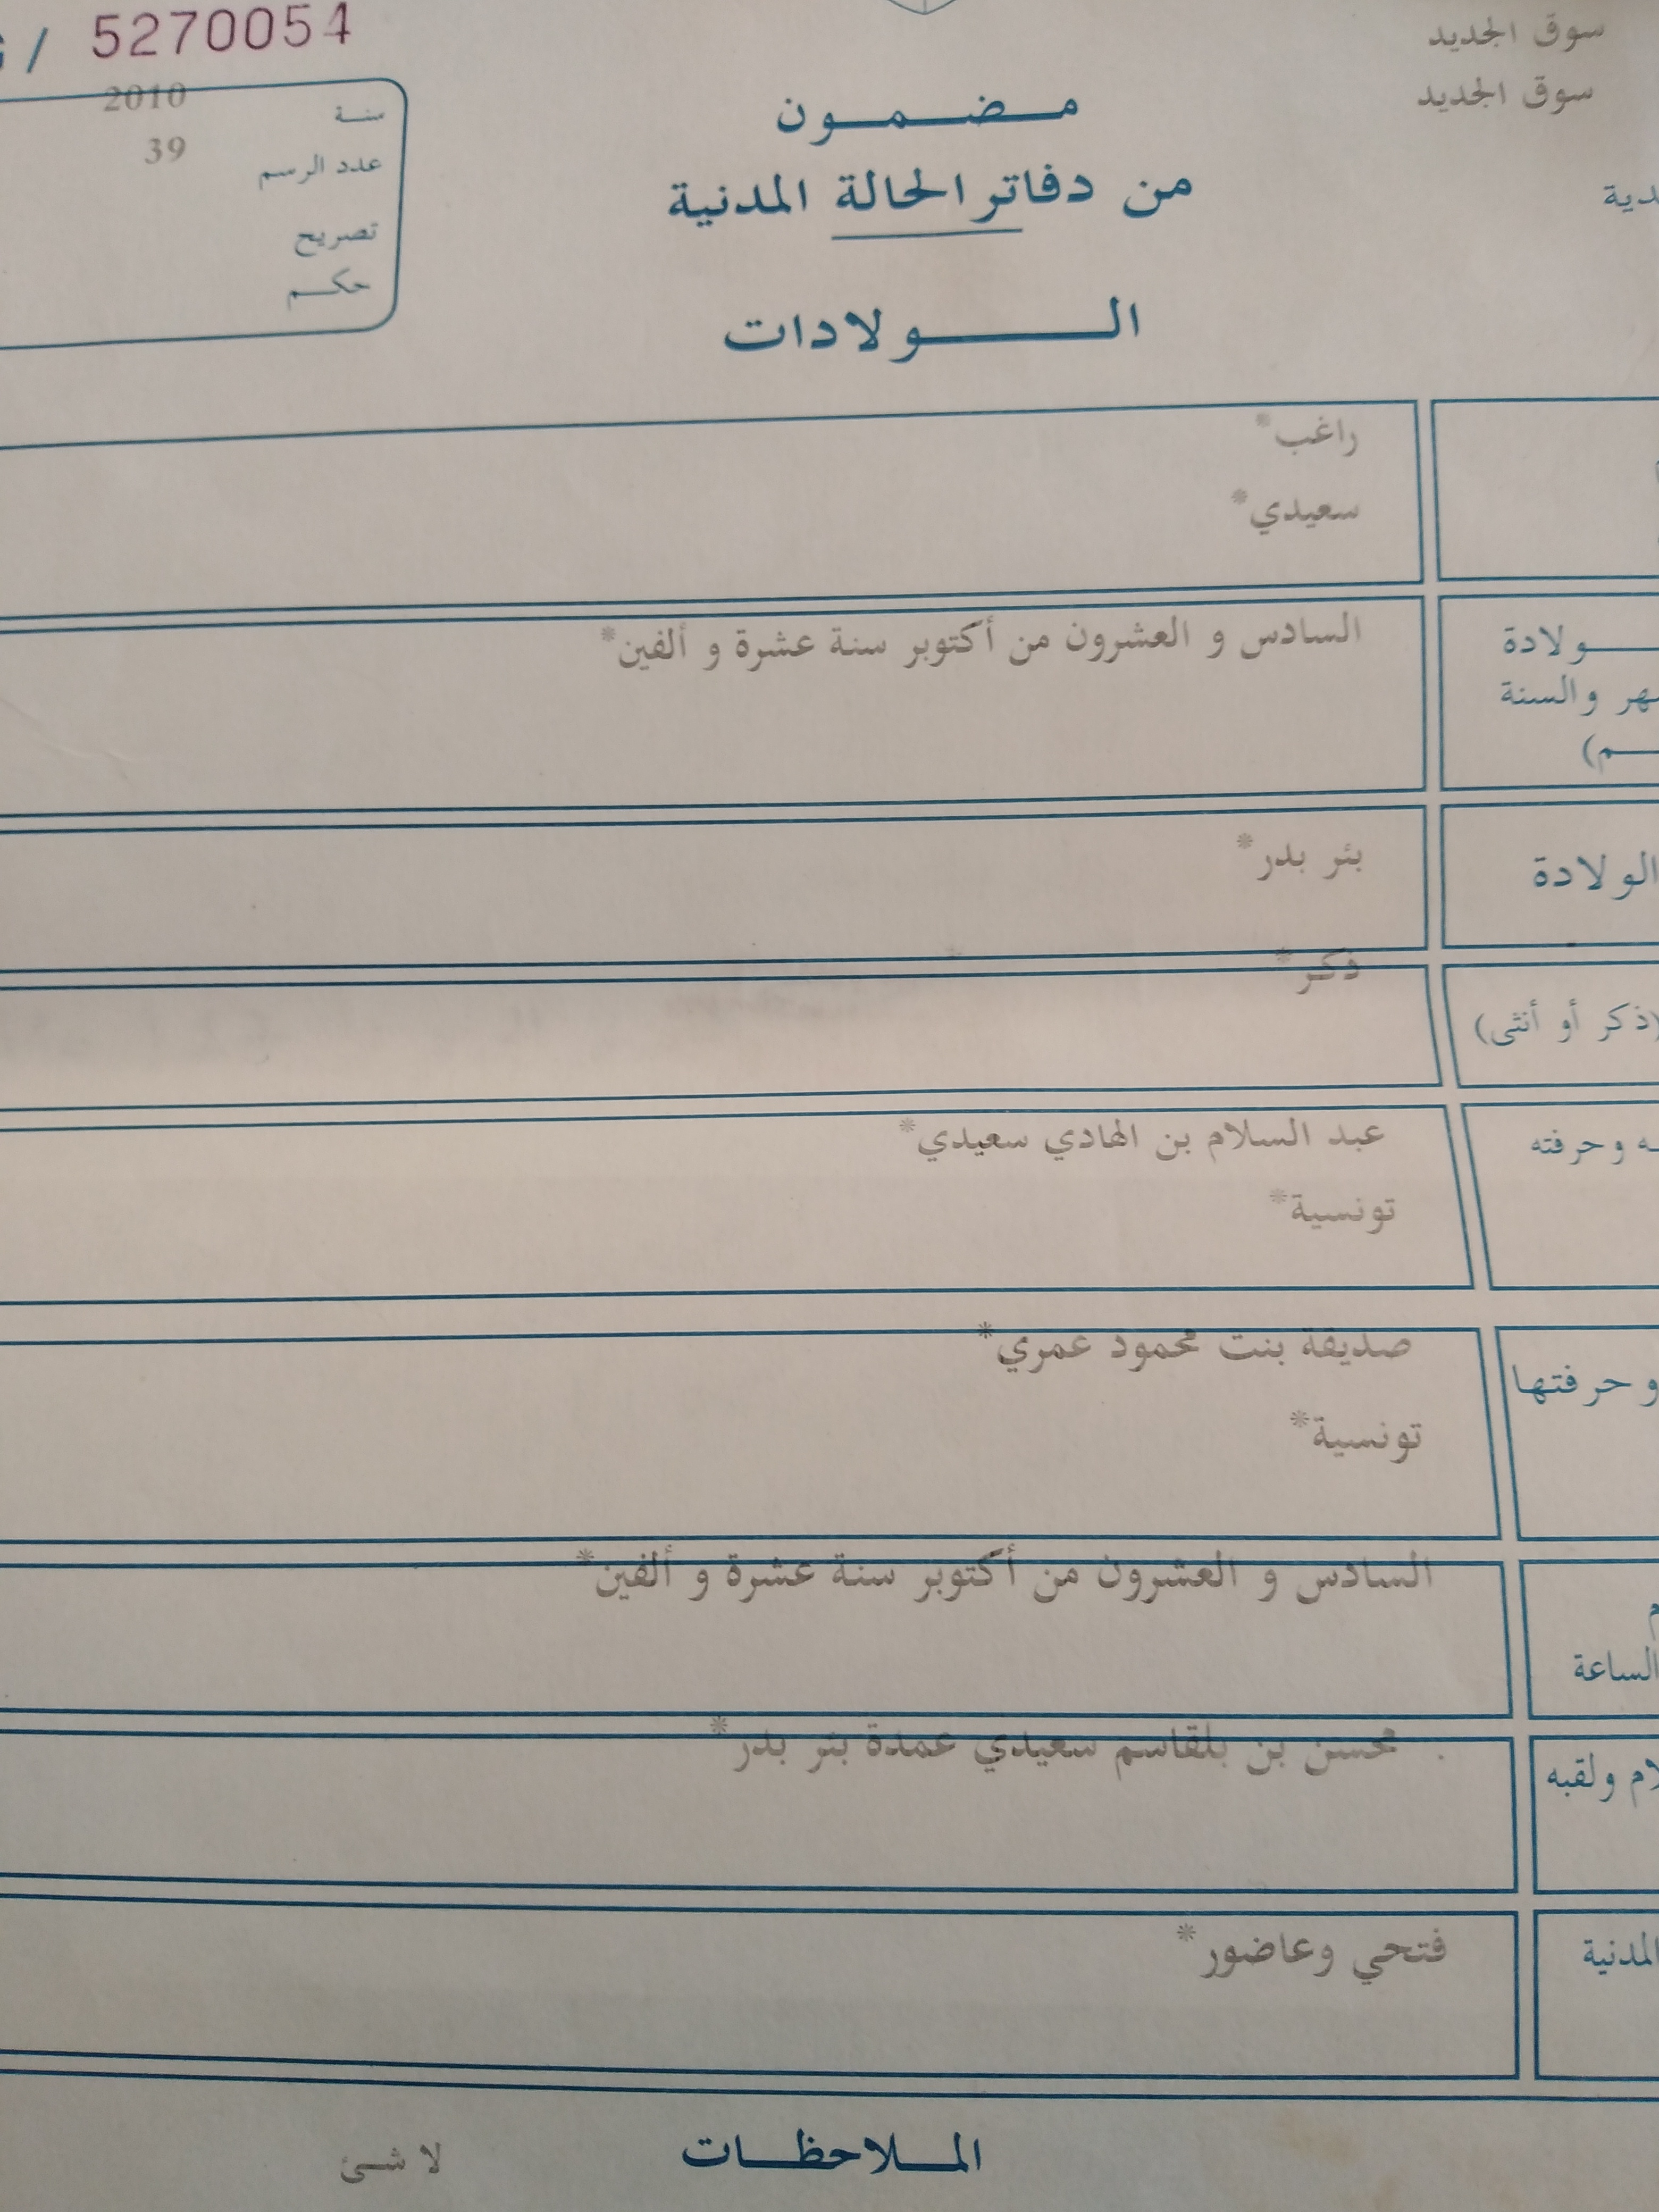 / 5270054
سوق الجديد
سوق الجديد
مضمون
من دفاتر الحالة المدنية
الولادات
سنة 2010
عدد الرسم 39
تصريح
حكم
راغب*
سعيدي*
ولادة
والسنة
السادس و العشرون من أكتوبر سنة عشرة و ألفين*
الولادة
بئر بدر*
(ذكر أو أنثى)
ذكر*
وحرفته
عبد السلام بن الهادي سعيدي*
تونسية*
وحرفتها
صديقة بنت محمود عمري*
تونسية*
السادس و العشرون من أكتوبر سنة عشرة و ألفين*
الساعة
ولقبه
محسن بن بلقاسم سعيدي عمدة بئر بدر*
المدنية
فتحي وعاضور*
الملاحظات
لا شئ